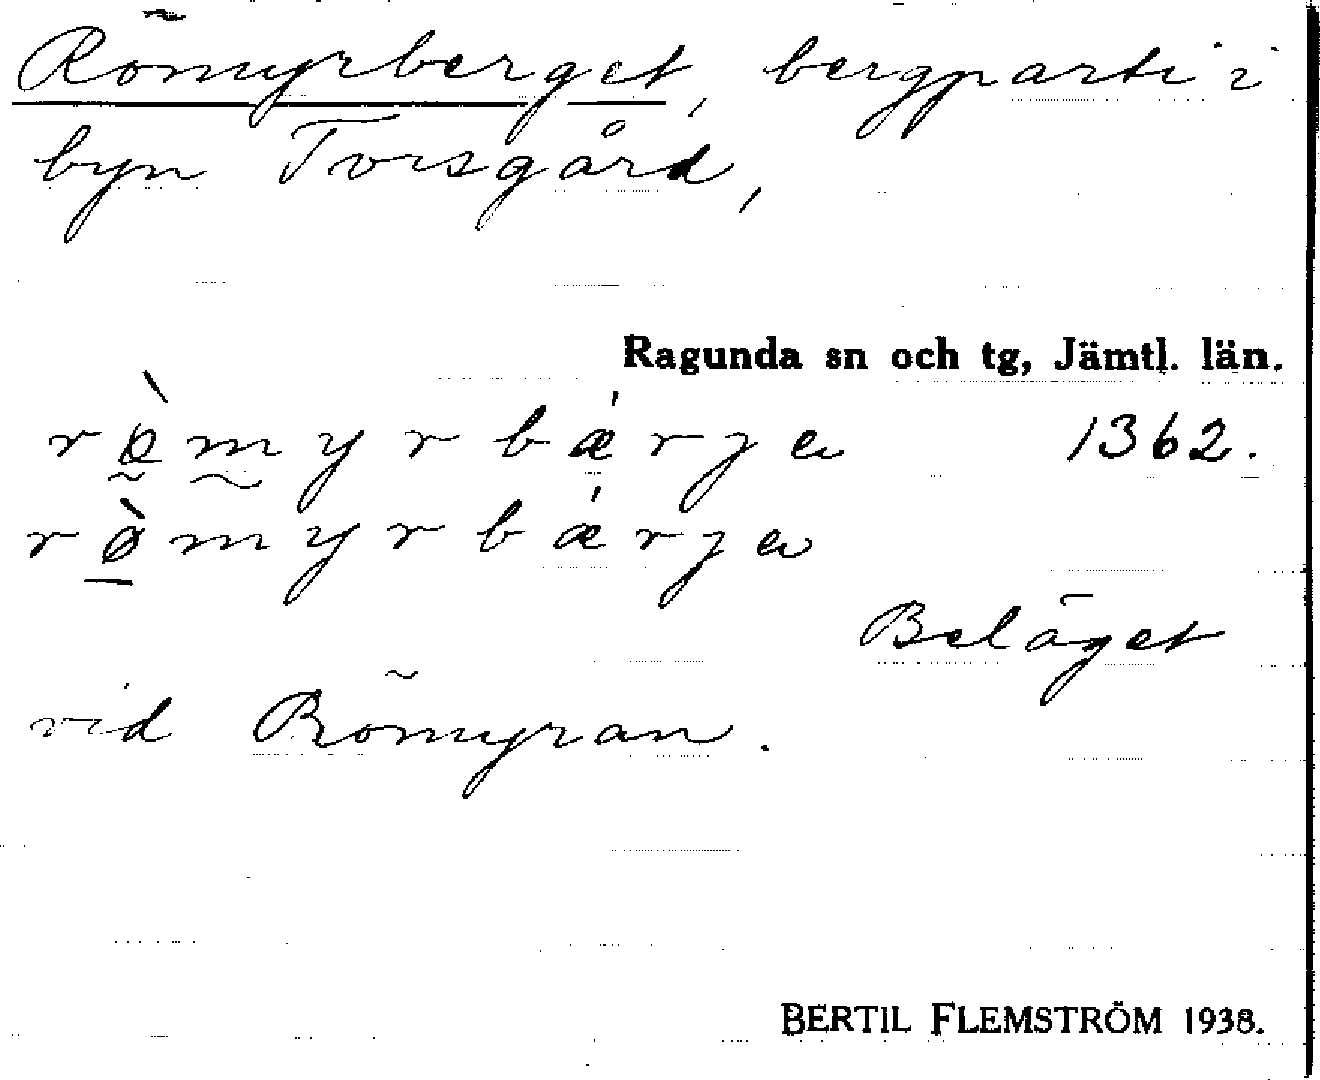 Römyrberget, bergparti i
byn Torsgård,
Ragunda sn och tg, Jämtl. län.
rø̀myrbǽrjə 1362.
rø̀myrbǽrjə
Beläget
vid Römyran.
BERTIL FLEMSTRÖM 1938.